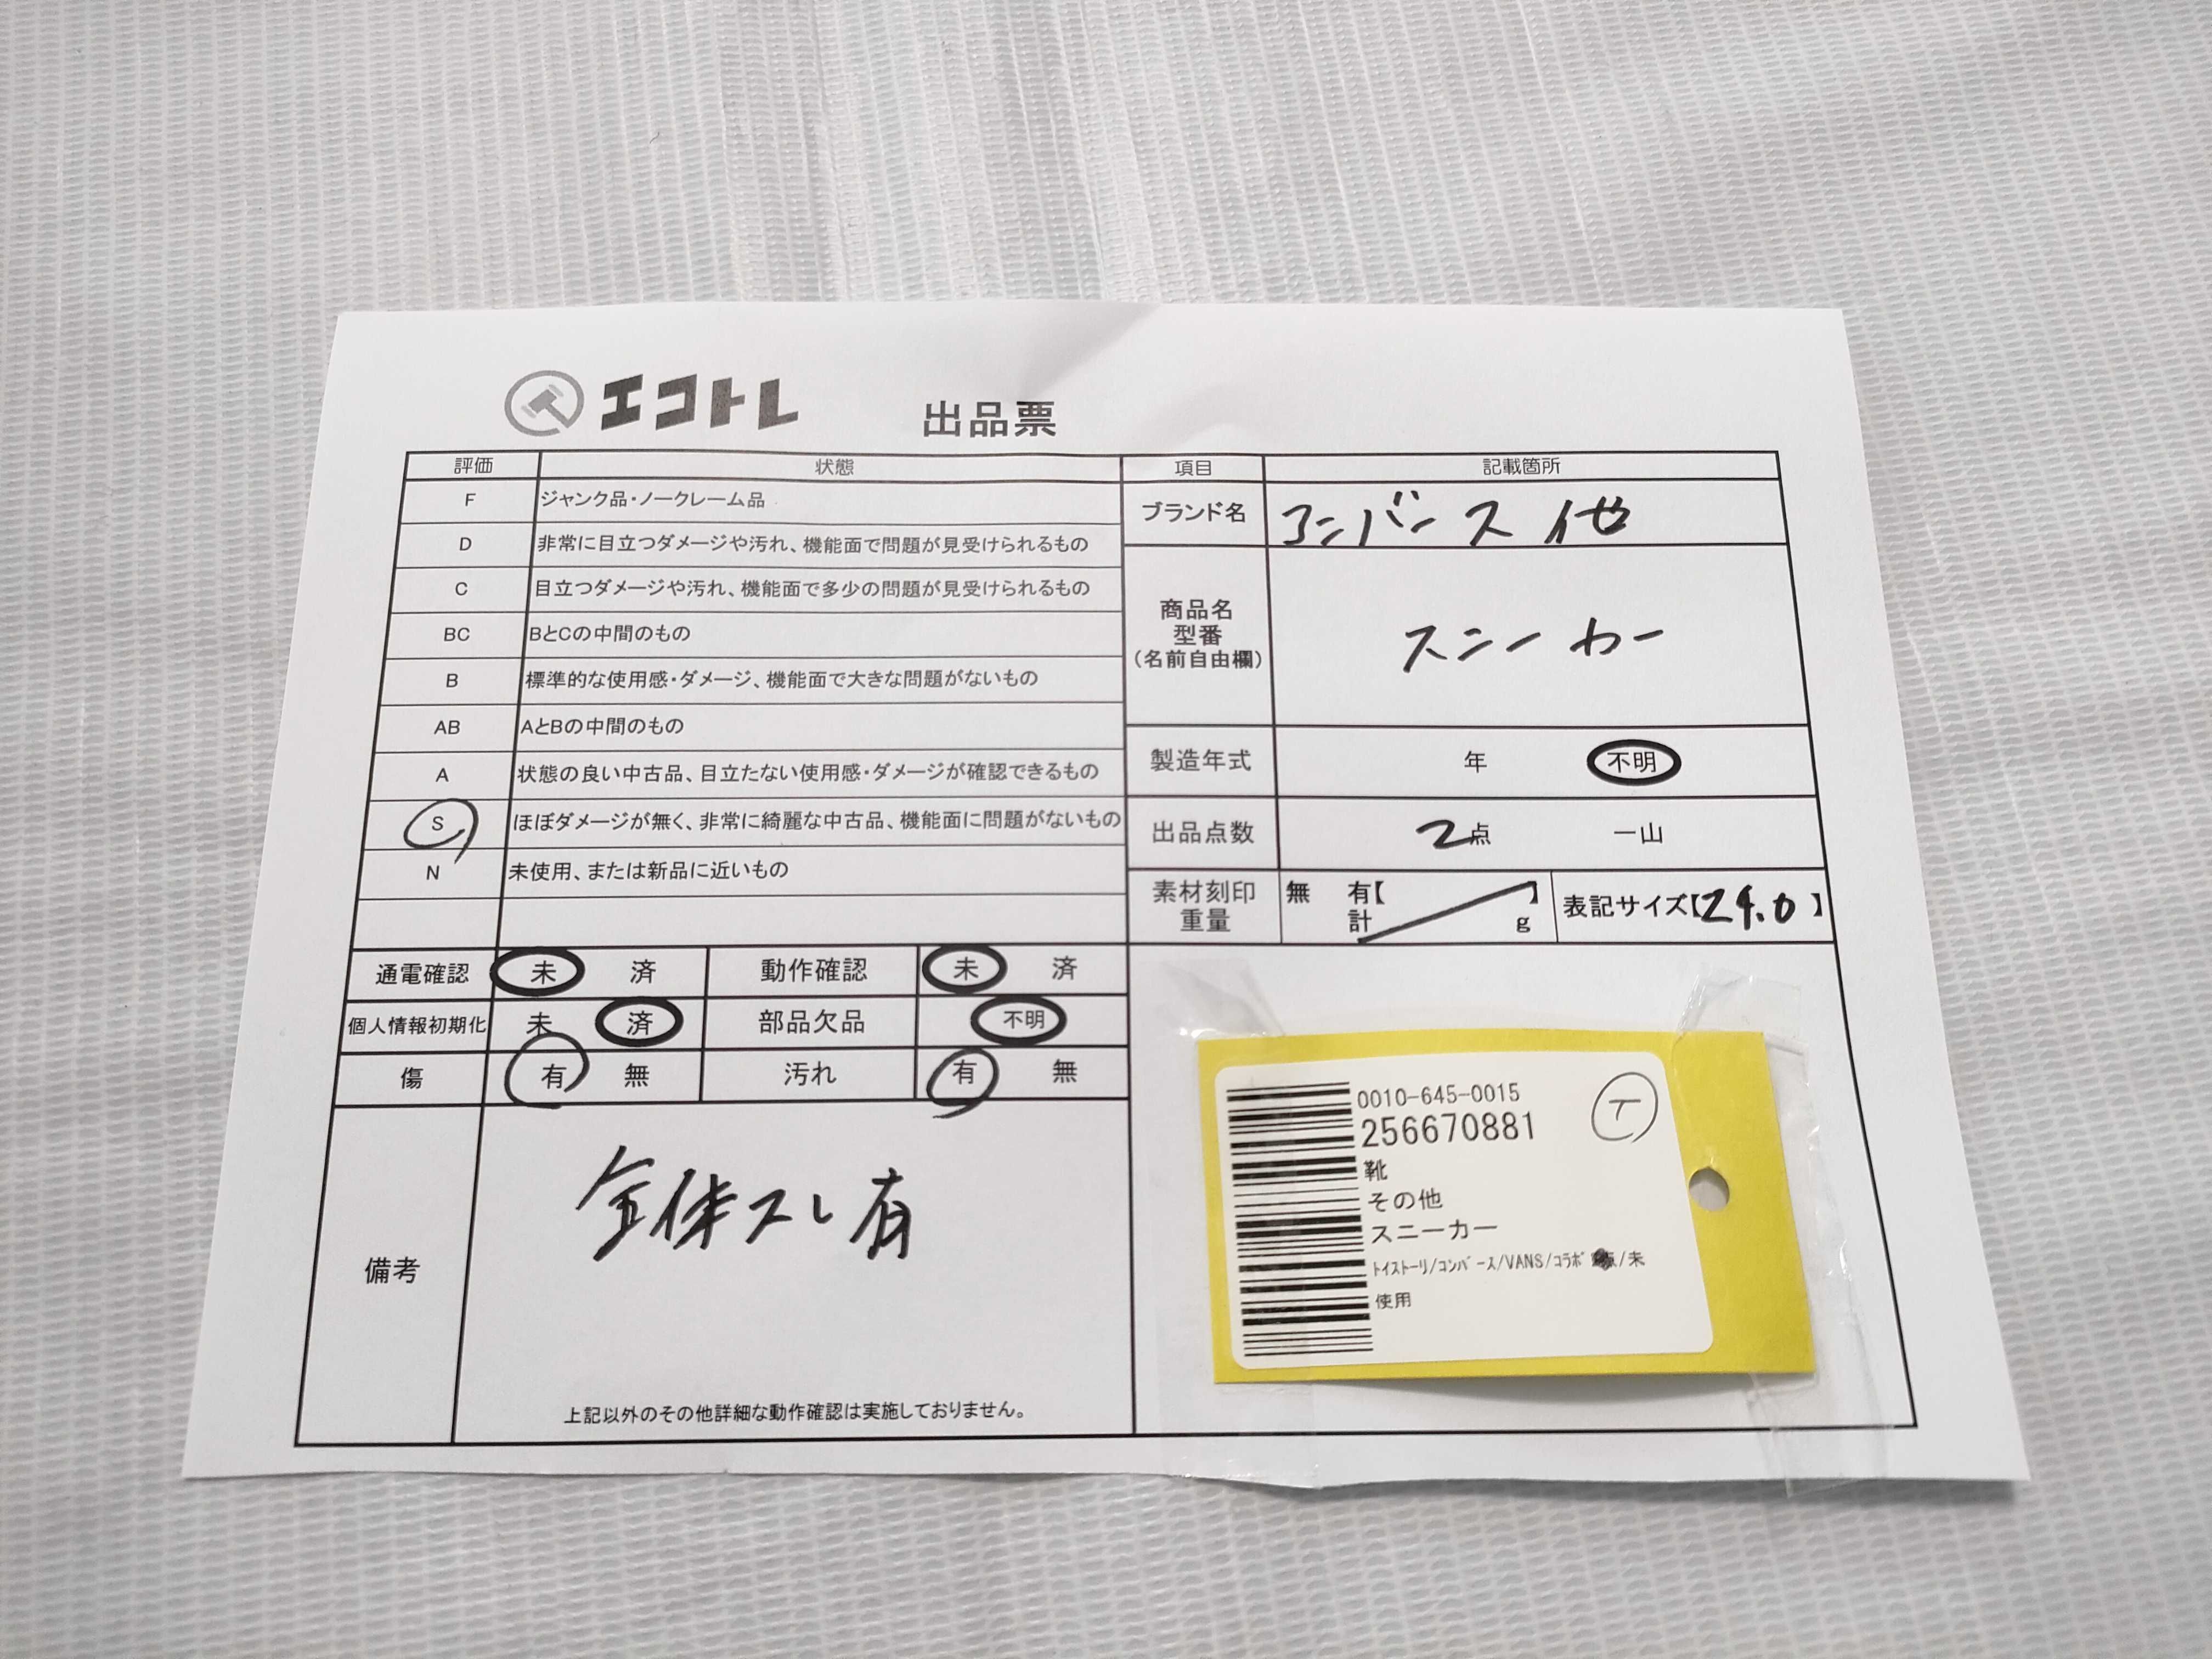 エコトレ 出品票
評価 状態
F ジャンク品・ノークレーム品
D 非常に目立つダメージや汚れ、機能面で問題が見受けられるもの
C 目立つダメージや汚れ、機能面で多少の問題が見受けられるもの
BC BとCの中間のもの
B 標準的な使用感・ダメージ、機能面で大きな問題がないもの
AB AとBの中間のもの
A 状態の良い中古品、目立たない使用感・ダメージが確認できるもの
S ほぼダメージが無く、非常に綺麗な中古品、機能面に問題がないもの
N 未使用、または新品に近いもの
項目 記載箇所
ブランド名 コンバース 他
商品名
型番
(名前自由欄)
スニーカー
製造年式 年 不明
出品点数 2点 一山
素材刻印 無 有【 】
重量 計 g
表記サイズ【24.0】
通電確認 未 済 動作確認 未 済
個人情報初期化 未 済 部品欠品 不明
傷 有 無 汚れ 有 無
備考
全体スレ有
上記以外のその他詳細な動作確認は実施しておりません。
0010-645-0015
256670881
T
靴
その他
スニーカー
ﾄｲｽﾄｰﾘ/ｺﾝﾊﾞｰｽ/VANS/ｺﾗﾎﾞ 点/未
使用